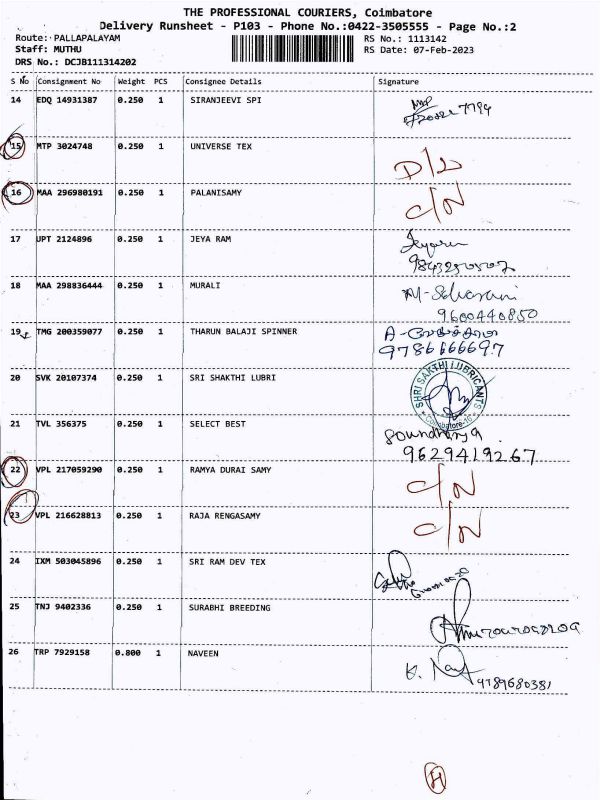 THE PROFESSIONAL COURIERS, Coimbatore
Delivery Runsheet - P103 - Phone No.:0422-3505555 - Page No.:2
Route: PALLAPALAYAM RS No.: 1113142
Staff: MUTHU RS Date: 07-Feb-2023
DRS No.: DCJB111314202
S No Consignment No Weight PCS Consignee Details Signature
14 EDQ 14931387 0.250 1 SIRANJEEVI SPI
15 MTP 3024748 0.250 1 UNIVERSE TEX D/L
16 MAA 296980191 0.250 1 PALANISAMY C/N
17 UPT 2124896 0.250 1 JEYA RAM Jeyaram
18 MAA 298836444 0.250 1 MURALI
9600440850
19 TMG 200359077 0.250 1 THARUN BALAJI SPINNER
9786666697
20 SVK 20107374 0.250 1 SRI SHAKTHI LUBRI SHRI SAKTHI LUBRICANTS
21 TVL 356375 0.250 1 SELECT BEST Soundarya
9629419267
22 VPL 217059290 0.250 1 RAMYA DURAI SAMY C/N
23 VPL 216628813 0.250 1 RAJA RENGASAMY C/N
24 IXM 503045896 0.250 1 SRI RAM DEV TEX
25 TNJ 9402336 0.250 1 SURABHI BREEDING
26 TRP 7929158 0.800 1 NAVEEN
9789680381
H